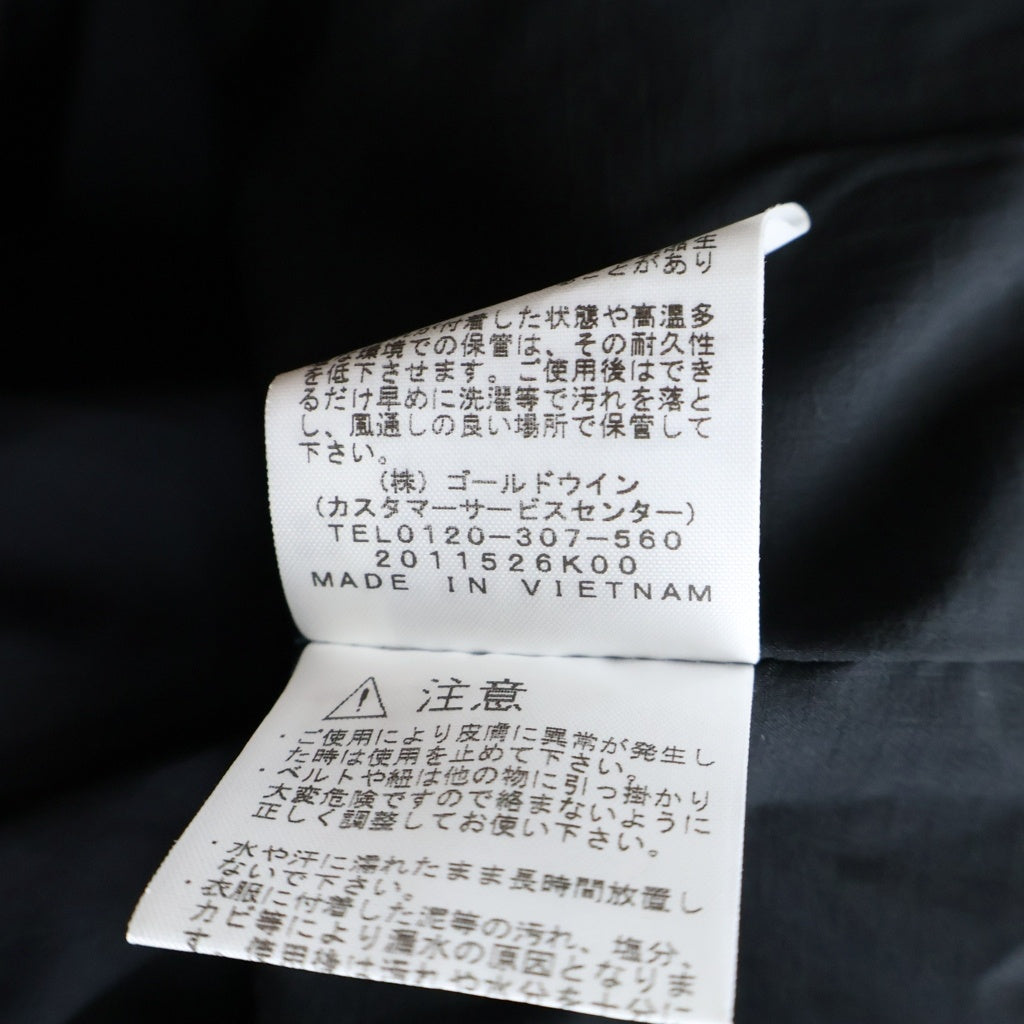 とがあり
付着した状態や高温多
環境での保管は、その耐久性
を低下させます。ご使用後はでき
るだけ早めに洗濯等で汚れを落と
し、風通しの良い場所で保管して
下さい。
(株) ゴールドウイン
(カスタマーサービスセンター)
TEL0120-307-560
2011526K00
MADE IN VIETNAM
注意
・ご使用により皮膚に異常が発生し
た時は使用を止めて下さい。
・ベルトや紐は他の物に引っ掛かり
大変危険ですので絡まないように
正しく調整してお使い下さい。
・水や汗に濡れたまま長時間放置し
ないで下さい。
・衣服に付着した泥等の汚れ、塩分、
カビ等により漏水の原因となりま
す。使用後は汚れや水分を十分に